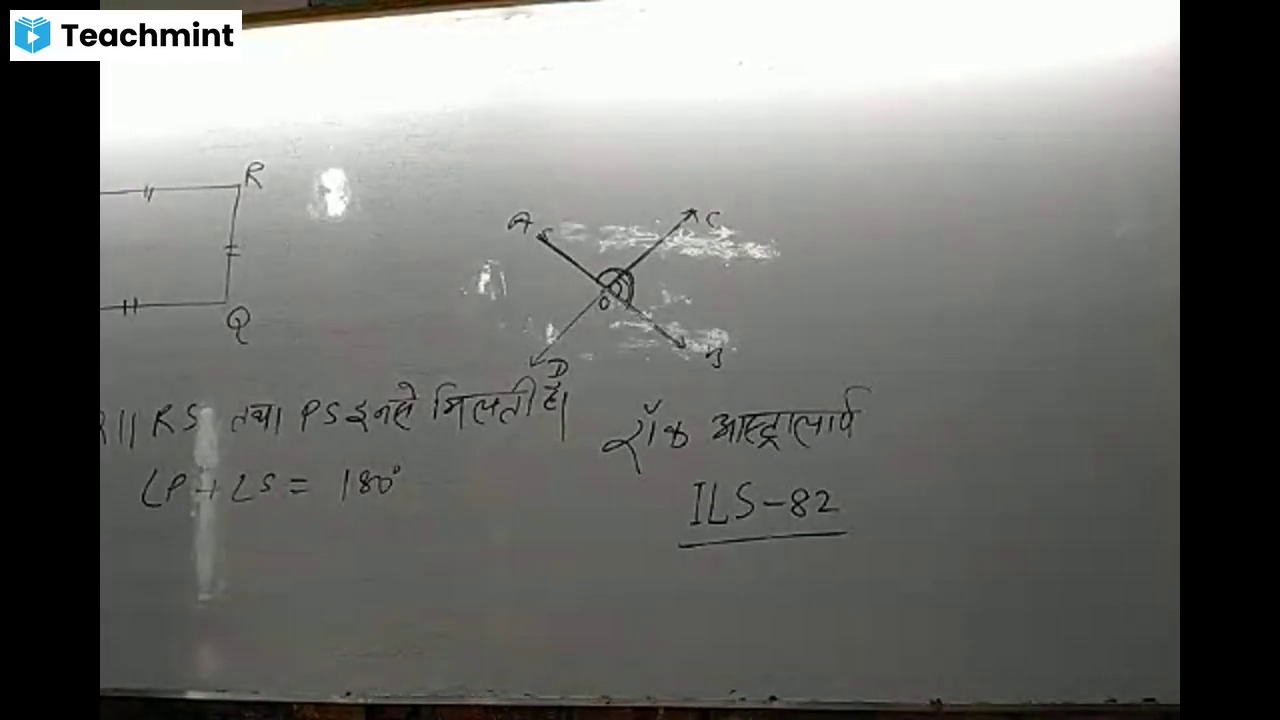 Teachmint
R
Q
A
C
O
D
B
|| RS तथा PS इनसे मिलती है।
∠P + ∠S = 180°
रॉक आस्ट्रालार्प
ILS-82